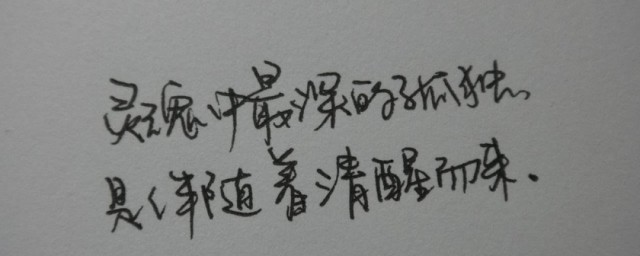 灵魂中最深的孤独、
是伴随着清醒而来.